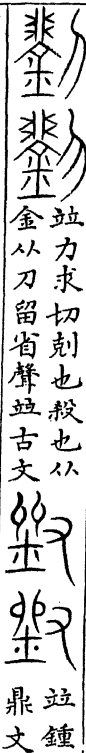 竝力求切剋也殺也从
金从刀留省聲竝古文
竝鍾
鼎文